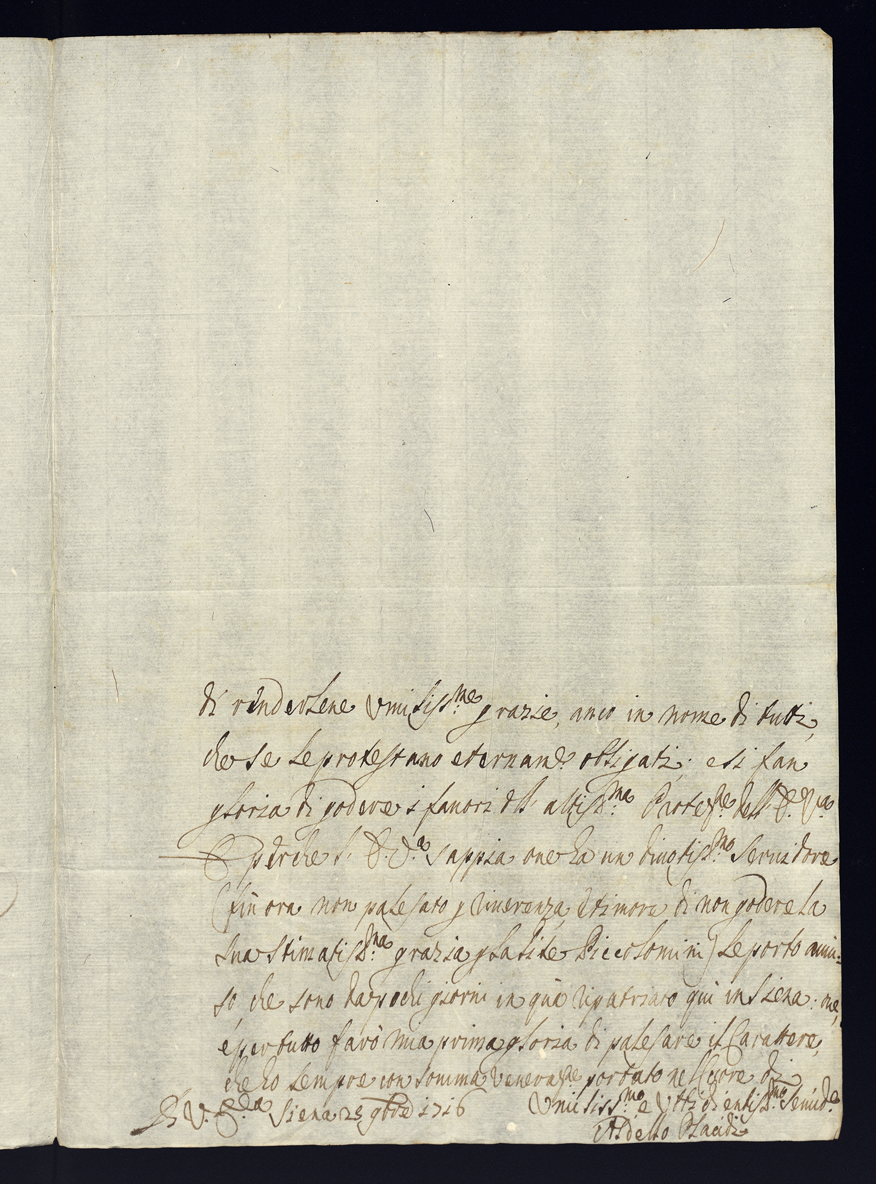 di rendersene umiliss.me grazie, anco in nome di tutti,
che se le protestano eternam.e obligati; e si fan
gloria di godere i favori dell' altiss.ma Protez.ne dell' E. V.a
E perche l' E. V.a sappia ove ha un divotiss.mo Servidore
(fin ora non palesato p riverenza, e timore di non godere la
sua stimatiss.ma grazia p la lite Piccolomini) le porto avvi-
so, che sono da pochi giorni in quà ripatriato quì in Siena: ove,
e per tutto farò mia prima gloria di palesare il Carattere,
che ho sempre con somma veneraz.ne portato nel Cuore di
Di V. Ecc.a Siena 23 9bre 1716 Umiliss.mo e Obbidientiss.mo Servid.e
Placidi